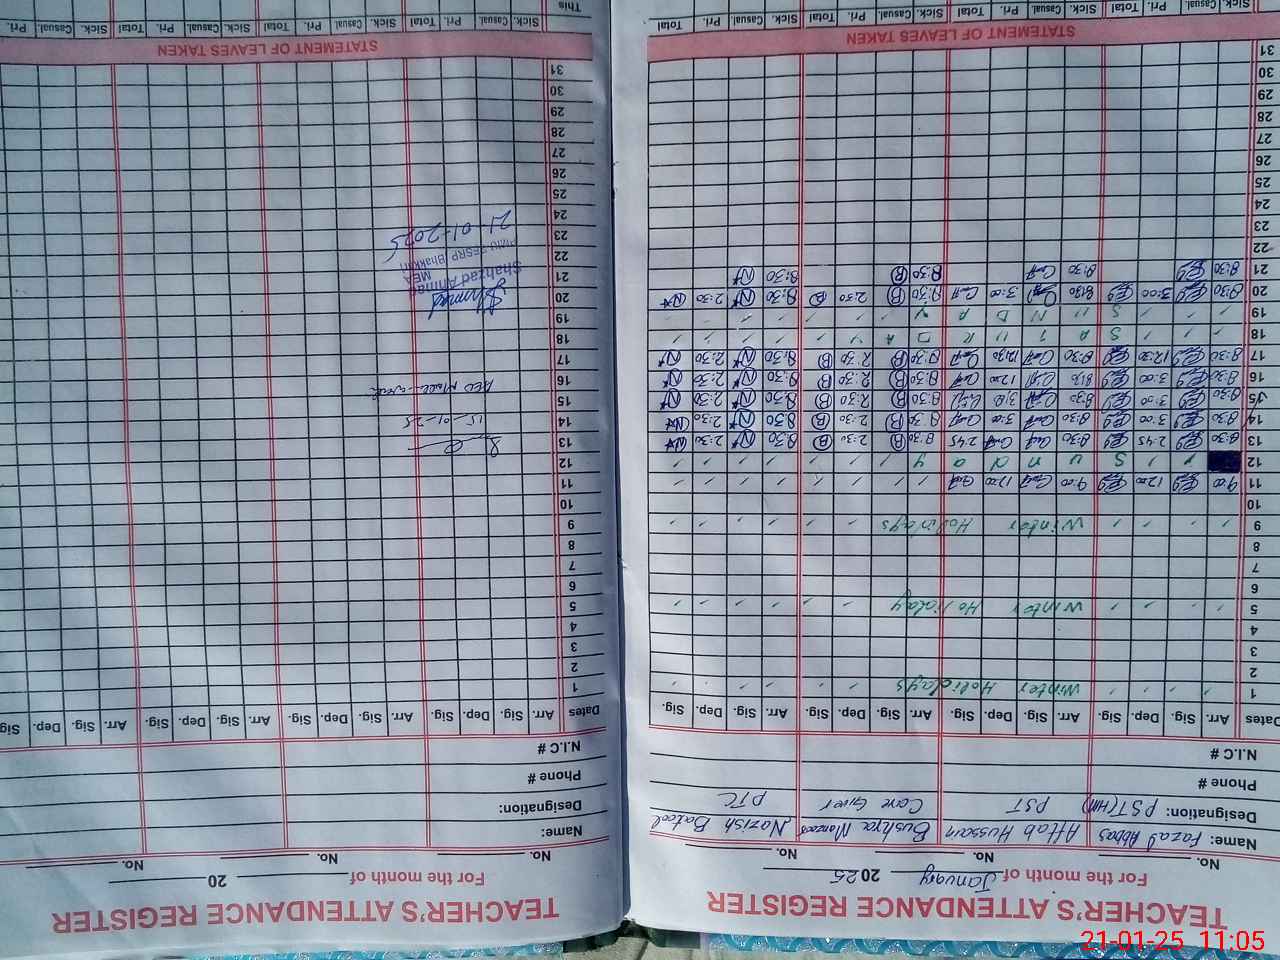 TEACHER'S ATTENDANCE REGISTER
For the month of January 2025
No. No. No. No.
Name: Fazal Abbas Aftab Hussain Bushra Nazish Batool
Designation: PST(HM) PST Care Giver PTC
Phone #
N.I.C #
Dates Arr. Sig. Dep. Sig. Arr. Sig. Dep. Sig. Arr. Sig. Dep. Sig. Arr. Sig. Dep. Sig.
1 Winter Holidays
2
3
4
5 Winter Holiday
6
7
8
9 Winter Holidays
10
11 9:00 12:00 9:00 12:00
12 S u n d a y
13 8:30 2:45 8:30 2:45 8:30 B 2:30 B 8:30 N 2:30 N
14 8:30 3:00 8:30 3:00 8:30 B 2:30 B 8:30 N 2:30 N
15 8:30 3:00 8:30 8:30 B 2:30 B 8:30 N 2:30 N
16 8:30 3:00 8:30 12:00 8:30 B 2:30 B 8:30 N 2:30 N
17 8:30 12:30 8:30 12:30 8:30 B 2:30 B 8:30 N 2:30 N
18 S A T U R D A Y
19 S U N D A Y
20 8:30 3:00 8:30 3:00 8:30 B 2:30 B 8:30 N 2:30 N
21 8:30 8:30 8:30 B 8:30 N
22
23
24
25
26
27
28
29
30
31
STATEMENT OF LEAVES TAKEN
Sick. Casual. Pri. Total Sick. Casual. Pri. Total Sick. Casual. Pri. Total Sick. Casual. Pri. Total
TEACHER'S ATTENDANCE REGISTER
For the month of 20
No. No. No. No.
Name:
Designation:
Phone #
N.I.C #
Dates Arr. Sig. Dep. Sig. Arr. Sig. Dep. Sig. Arr. Sig. Dep. Sig. Arr. Sig. Dep. Sig
1
2
3
4
5
6
7
8
9
10
11
12
13
14
15-01-25
15
16 AEO
17
18
19
20
Shahzad Ahmad
MEA
21
PMIU-PESRP Bhakkar
22
21-01-2025
23
24
25
26
27
28
29
30
31
STATEMENT OF LEAVES TAKEN
This Sick. Casual. Pri. Total Sick. Casual. Pri. Total Sick. Casual. Pri. Total Sick. Casual. Pri.
21-01-25 11:05